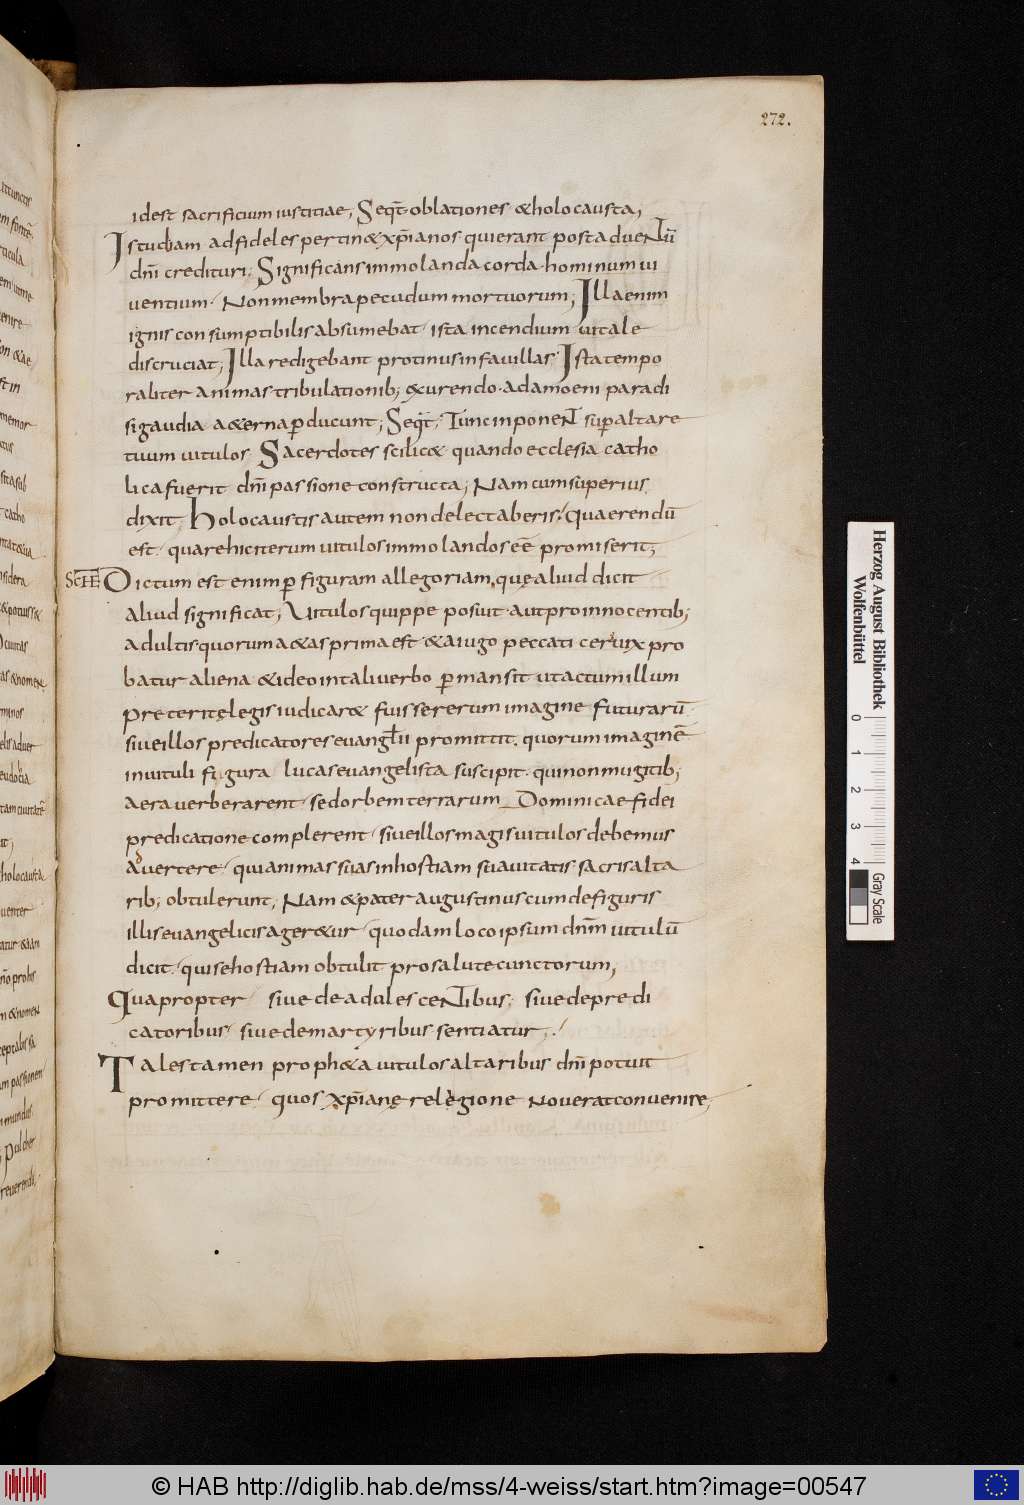 272.
idest sacrificium iustitiae; Seqt̄ oblationes & holocausta;
Istud iam ad fideles pertin& xp̄ianos· qui erant post aduentū
dn̄i credituri; Significans immolanda corda· hominum ui
uentium· Non membra pecudum mortuorum; Illa enim
ignis consumptibilis absumebat· ista incendium uitale
discruciat; Illa redigebant protinus in fauillas· Ista tempo
raliter animas tribulationib; exurendo· ad amoeni paradi
si gaudia a&erna ꝑducunt; Seqt̄; Tunc inponent suꝑ altare
tuum uitulos· Sacerdotes scilic& quando ecclesia catho
lica fuerit dn̄i passione constructa; Nam cum superius
dixit· holocaustis autem non delectaberis· Quaerendū
est· quare hic iterum uitulos immolandos eē promiserit;
SCHE Dictum est enim ꝑ figuram allegoriam, quę aliud dicit
aliud significat; Uitulos quippe posuit· aut pro innocentib;
adultis quorum a&as prima est & a iugo peccati ceruix pro
batur aliena· & ideo in tali uerbo ꝑmansit ut actum illum
pretęritę legis iudicar& fuisse rerum imagine futurarū·
siue illos predicatores euanglīi promittit· quorum imaginē
in uituli figura lucas euangelista suscipit· qui non mugitib;
aera uerberarent· sed orbem terrarum Dominicae fidei
predicatione complerent· siue illos magis uitulos debemus
aduertere· qui animas suas in hostiam suauitatis sacris alta
rib; obtulerunt; Nam & pater augustinus cum de figuris
illis euangelicis ager&ur· quodam loco ipsum dnm̄ uitulū
dicit· qui se hostiam obtulit pro salute cunctorum;
Quapropter siue de adulescentibus· siue de predi
catoribus· siue de martyribus sentiatur;
Tales tamen proph&a uitulos altaribus dn̄i potuit
promittere· quos xp̄ianę relegione nouerat conuenire;
Herzog August Bibliothek
Wolfenbüttel
0 1 2 3 4
Gray Scale
© HAB http://diglib.hab.de/mss/4-weiss/start.htm?image=00547